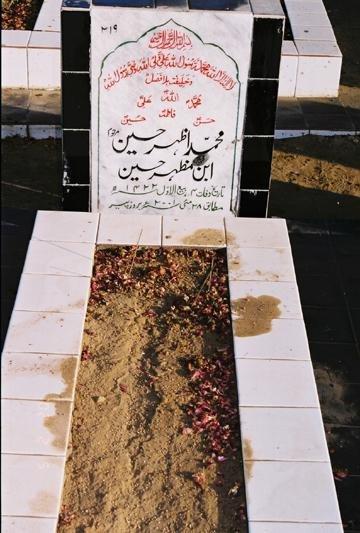 ۲۱۹
بسم الله الرحمن الرحيم
لا اله الا الله محمد رسول الله علي ولي الله وصي رسول الله
وخليفته بلا فصل
محمدؐ اللہ علیؑ
حسنؑ فاطمہؑ حسینؑ
محمد اظہر حسین
ابن مظہر حسین
تاریخ وفات ۴ ربیع الاول ۱۴۲۲ھ
مطابق ۲۸ مئی ۲۰۰۱ بروز پیر